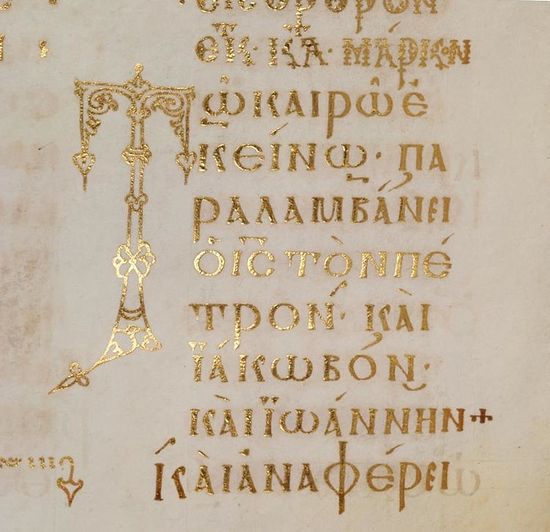 ΕΙϹΟΡΘΡΟΝ
ΕΚ· ΚΑ· ΜΑΡΚΟΝ
ΤΩ ΚΑΙΡΩ Ἐ
ΚΕΊΝΩ· ΠΑ
ΡΑΛΑΜΒΆΝΕΙ
Ὁ ΙϹ ΤῸΝ ΠΈ
ΤΡΟΝ· ΚΑῚ
ΪΆΚΩΒΟΝ·
ΚΑῚ ΪΩΆΝΝΗΝ +
ΚΑῚ ἈΝΑΦΈΡΕΙ